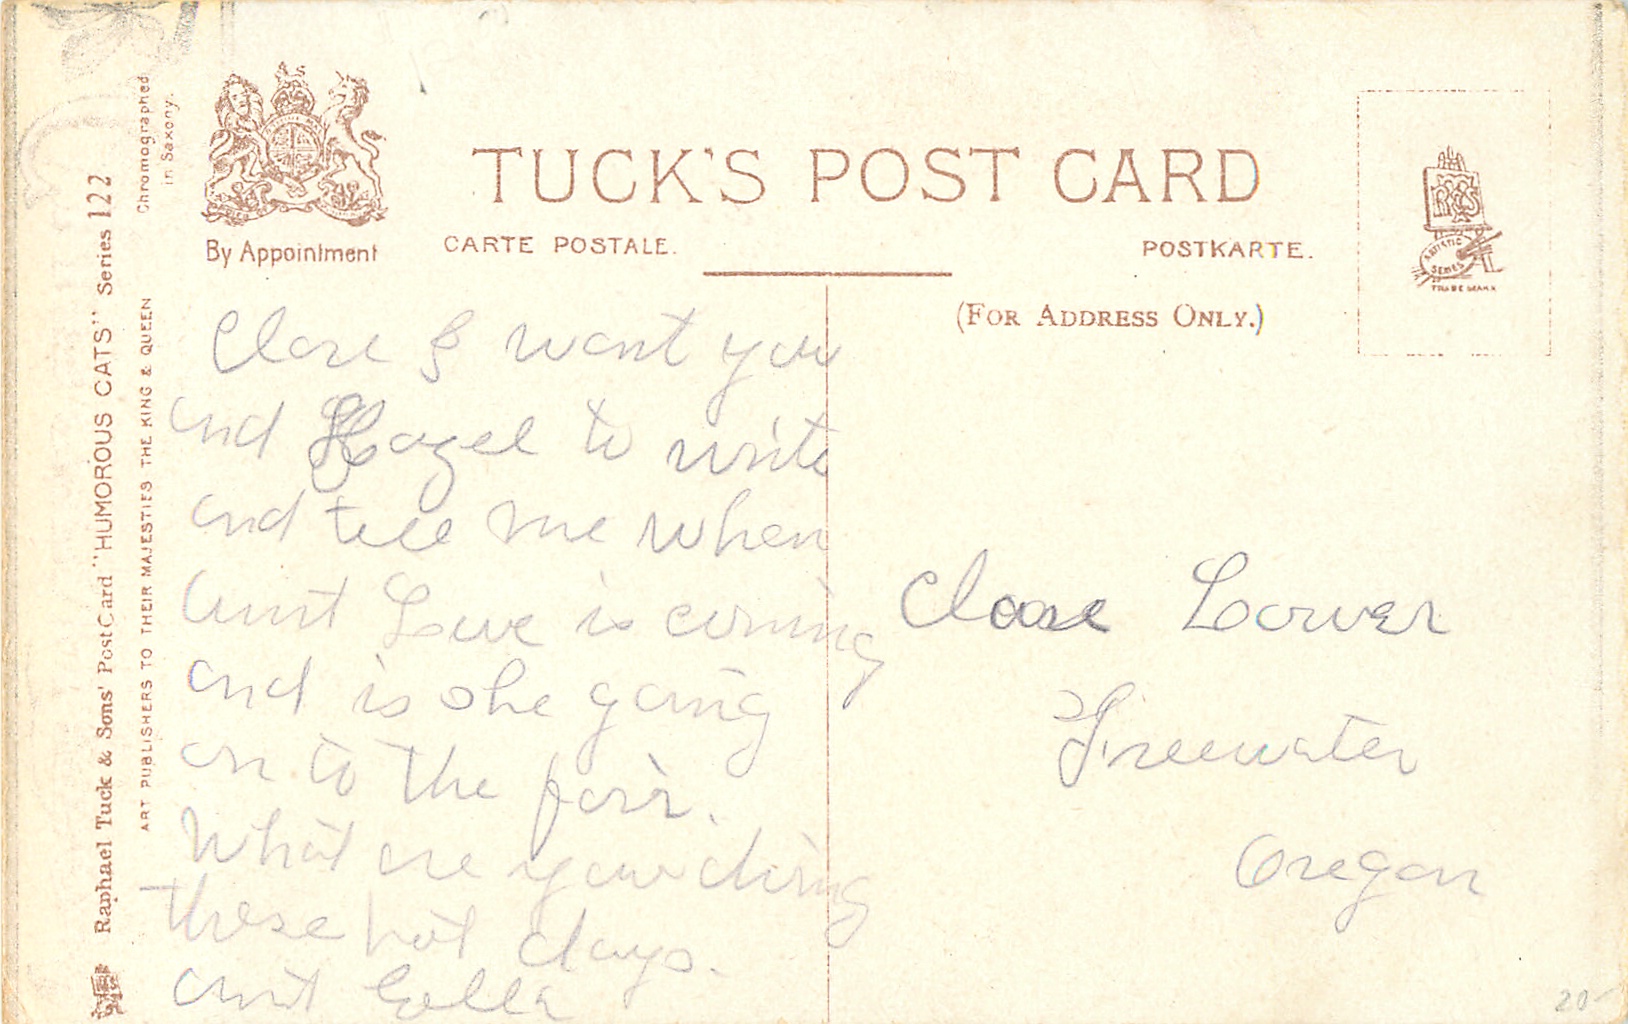 TUCK'S POST CARD
CARTE POSTALE.
POSTKARTE.
By Appointment
(FOR ADDRESS ONLY.)
Chromographed
in Saxony.
Raphael Tuck & Sons' Post Card "HUMOROUS CATS" Series 122
ART PUBLISHERS TO THEIR MAJESTIES THE KING & QUEEN
ARTISTIC
SERIES
TRADE MARK
Clare I want you
and Hazel to write
and tell me when
aunt is coming
and is she going
on to the fair.
What are you doing
these hot days.
aunt
Clare
Freewater
Oregon
20-